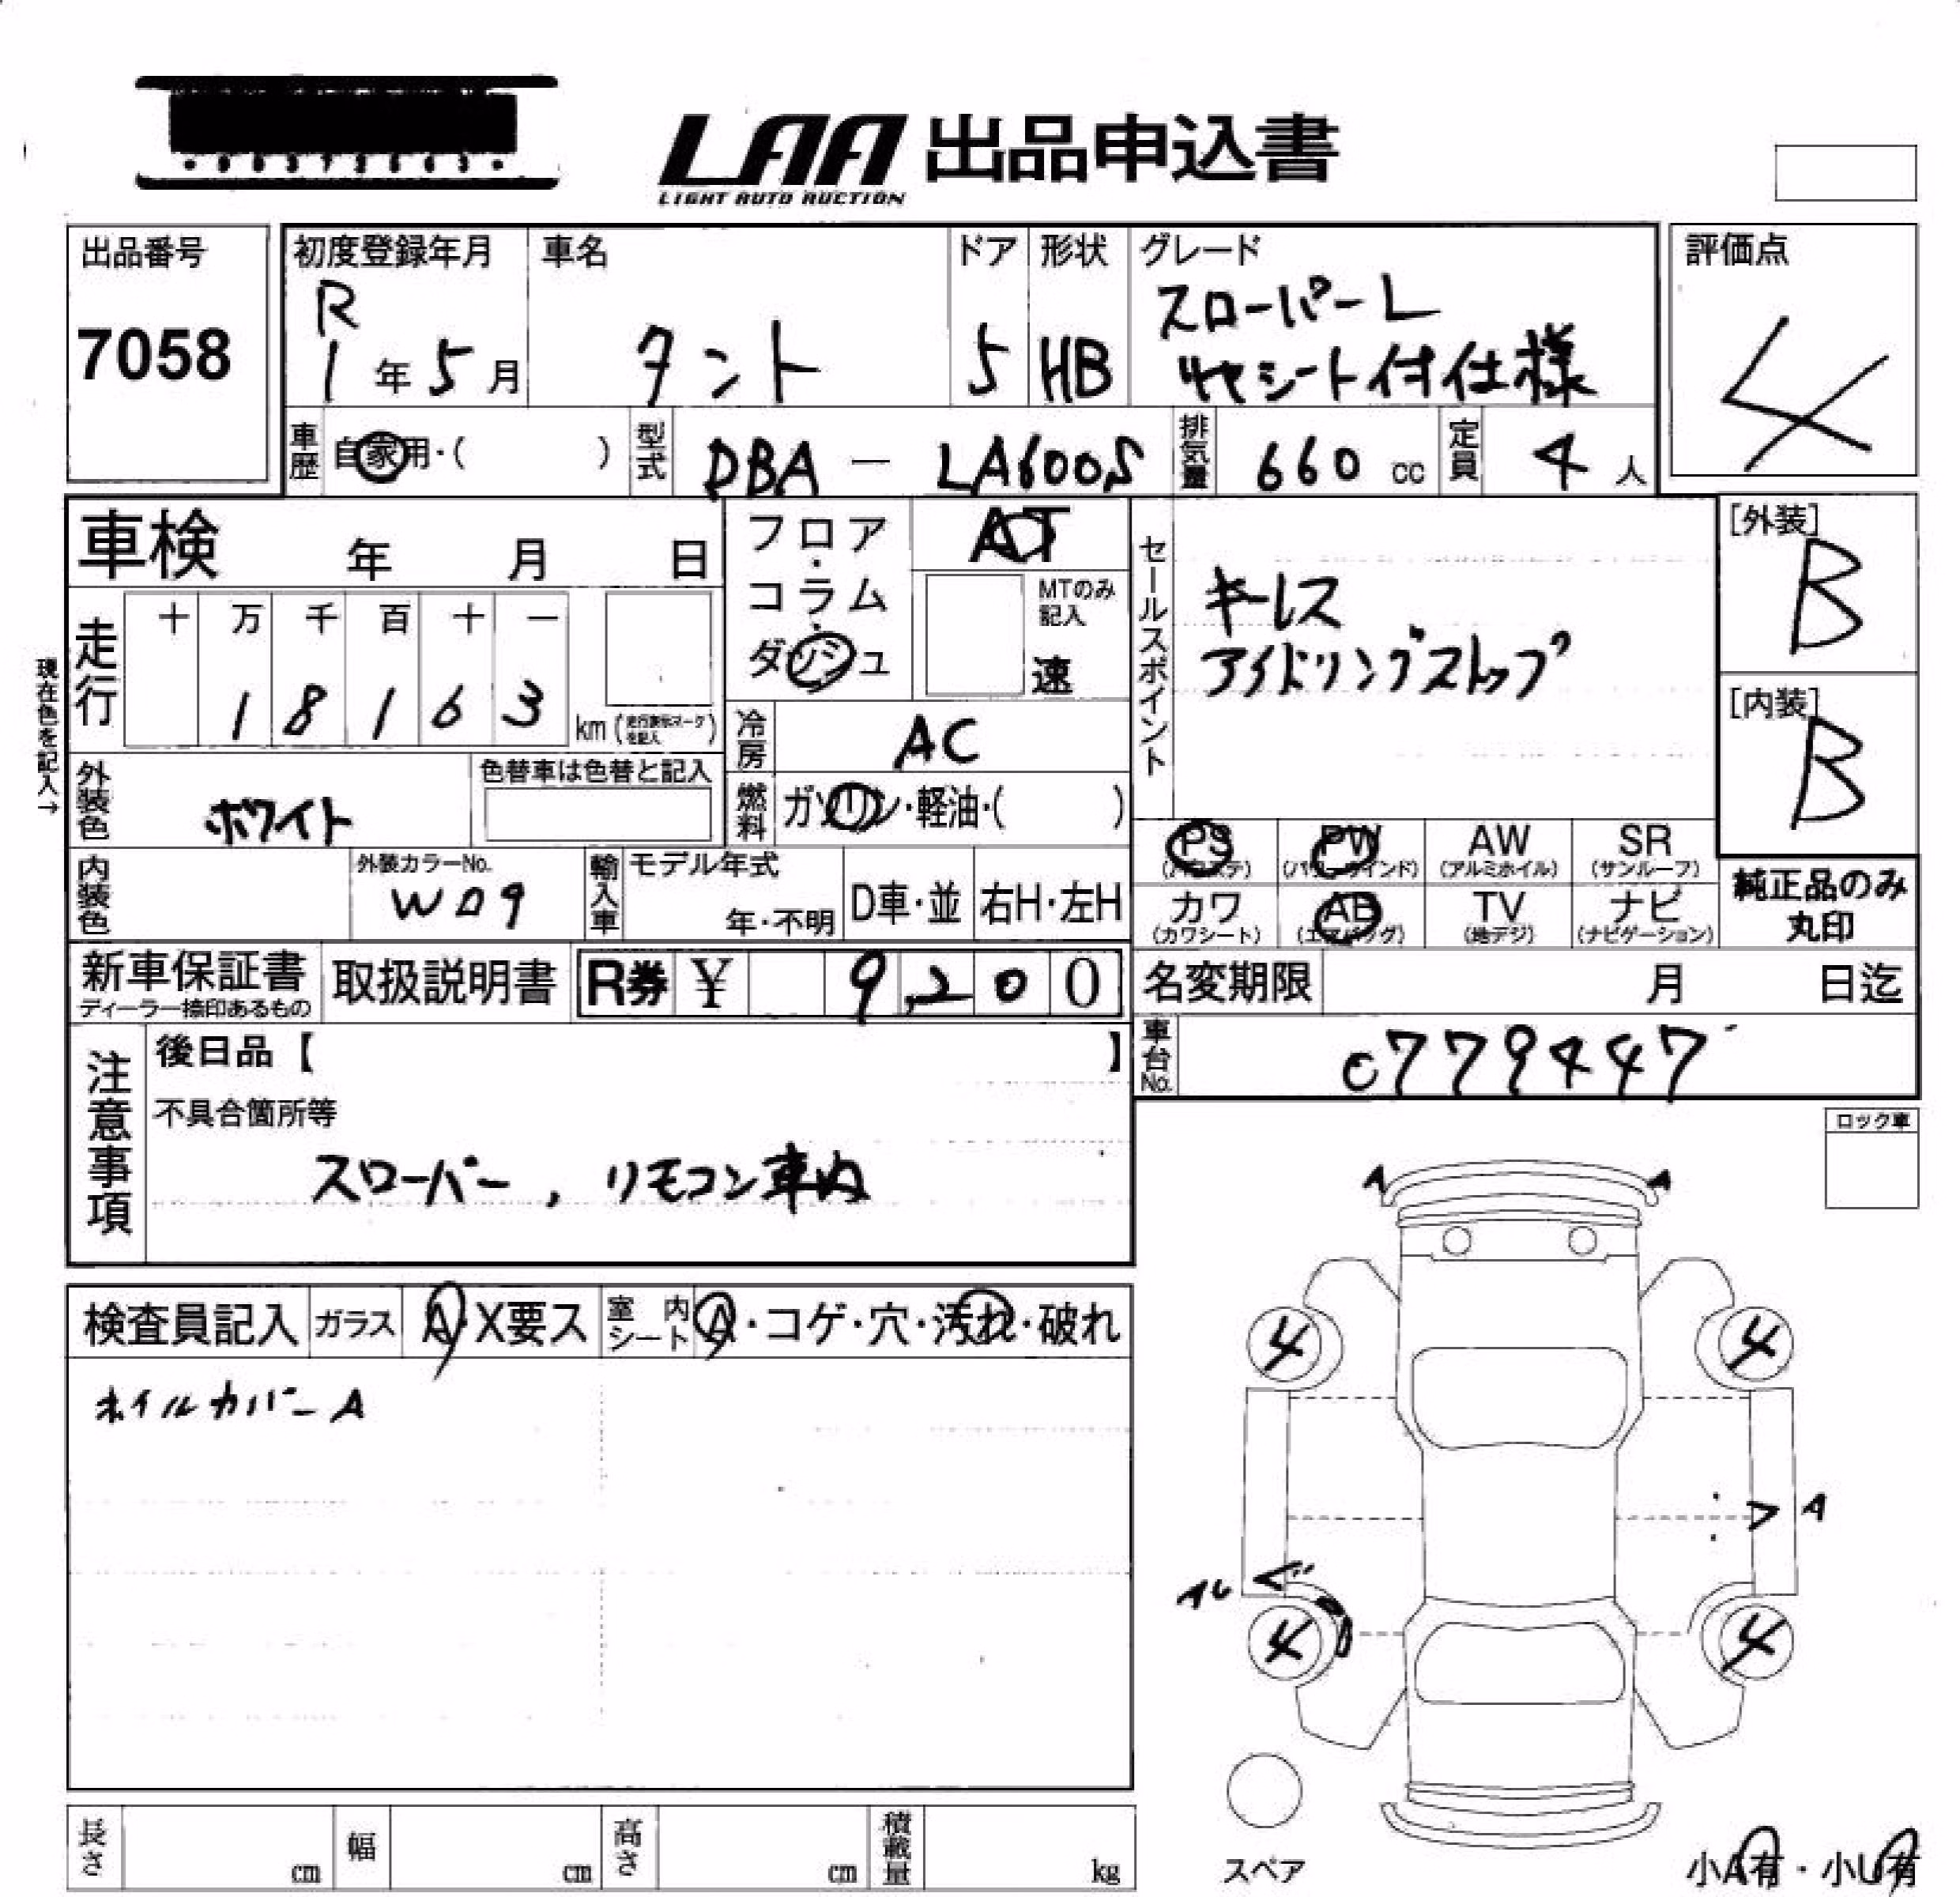 LAA 出品申込書
LIGHT AUTO AUCTION
出品番号
7058
初度登録年月
R
1年5月
車名
タント
ドア
5
形状
HB
グレード
スローパーL
リヤシート付仕様
評価点
4
車歴 自家用・( )
型式 DBA - LA600S
排気量 660 cc
定員 4 人
車検 年 月 日
フロア・コラム・ダッシュ
AT
MTのみ記入
速
セールスポイント
キーレス
アイドリングストップ
[外装]
B
[内装]
B
現在色を記入→
走行
十 万 千 百 十 一
1 8 1 6 3
km (走行表示マークを記入)
冷房 AC
燃料 ガソリン・軽油・( )
外装色 ホワイト
色替車は色替と記入
内装色
外装カラーNo.
W09
輸入車
モデル年式
年・不明
D車・並
右H・左H
PS (パワステ)
PW (パワーウインド)
AW (アルミホイル)
SR (サンルーフ)
カワ (カワシート)
AB (エアバッグ)
TV (地デジ)
ナビ (ナビゲーション)
純正品のみ丸印
新車保証書
ディーラー捺印あるもの
取扱説明書
R券 ¥ 9,200
名変期限 月 日迄
車台No. 0779447
注意事項
後日品【 】
不具合箇所等
スローパー, リモコン車内
ロック車
検査員記入
ガラス A・X要ス
室内シート A・コゲ・穴・汚れ・破れ
ホイルカバーA
A A
4 4
A
AU
4 4
スペア
小A有・小U有
長さ cm
幅 cm
高さ cm
積載量 kg